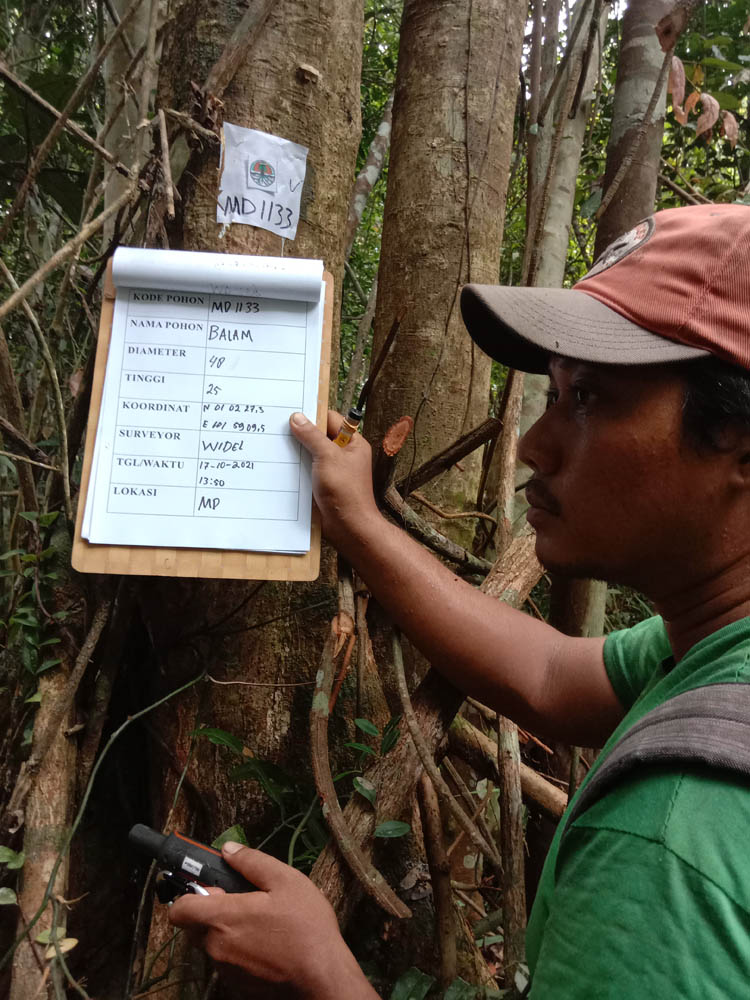 V
MD1133
KODE POHON MD1133
NAMA POHON BALAM
DIAMETER 48
TINGGI 25
KOORDINAT N 01 02 27,3
E 101 59 09,5
SURVEYOR WIDEL
TGL/WAKTU 17-10-2021
13:50
LOKASI MD